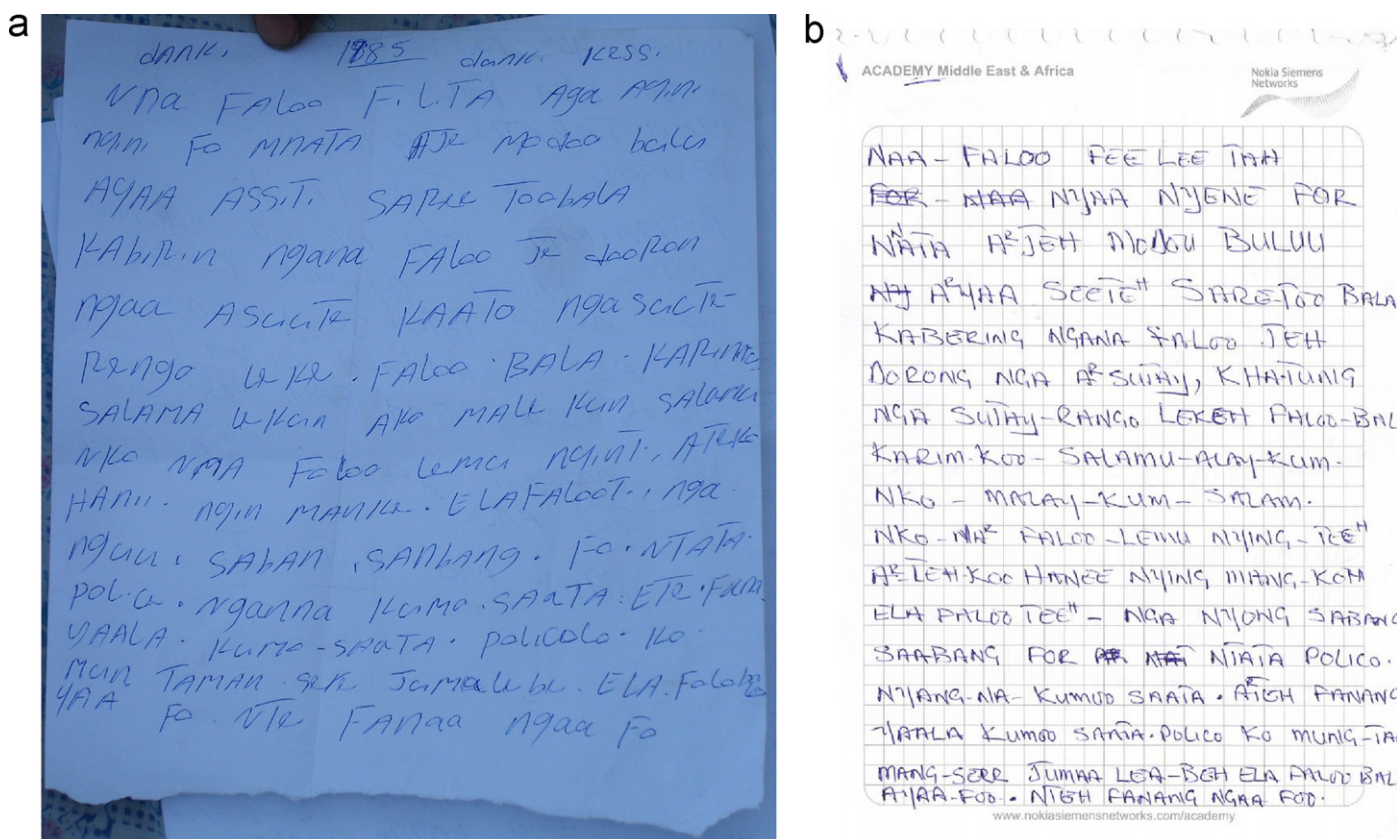 a
dank. 1885 dank. KESS.
NNa FALOO F.L.TA AgA AniNi
nGini FO MNATA AJE Modoo balu
AYAA ASSiTi SARRE TOOBALA
KAbiRin ngana FALOO JE dooRon
ngaa ASuuTE KAATO ngasucTE
RENgo LEKE. FALOO. BALA. KARIMKO
SALAMA LEKun AKO MALE Kun SALAMU
NKO NMA FALOO LEMU nginTi, ATEKO
HANii. ngin MANKE. ELAFALOOTi, nga
nguu. SABAN .SANBANG. FO. NTATA.
POLiCE. nganna KUMO.SAATA: ETE.FANA
YAALA. KUMO-SAATA. POLiCOLO. KO.
Mun TAMAN. SERE JUMALEbe. ELA.FaLoba
YAA FO. NTE FANAA ngaa FO
b
ACADEMY Middle East & Africa
Nokia Siemens
Networks
NAA - FALOO FEE LEE TAH
FOR - NAA NYAA NYENE FOR
NNATA A² JEH MODOU BULUU
NY A²YAA SEETE" SARE-TOO BALA
KABERING NGANA FALOO JEH
DORONG NGA A² SUTAY, KHATUNG
NGA SUTAY-RANGO LEKEH FALOO-BAL
KARIM-KOO- SALAMU-ALAY-KUM.
NKO - MALAY-KUM- SALAM.
NKO-NA² FALOO-LEMU NYING-TEE"
A²-TEH-KOO HANEE NYING MANG-KOH
ELA FALOO TEE" - NGA NYONG SABANG
SAABANG FOR NTATA POLICO.
NYANG-NA- KUMOO SAATA. A²TEH FANANG
YAALA KUMOO SAATA. POLICO KO MUNG-TA
MANG-SERR JUMAA LEA-BEH ELA FALOO BAL
A²YAA-FOO. NTEH FANANG NGAA FOO.
www.nokiasiemensnetworks.com/academy